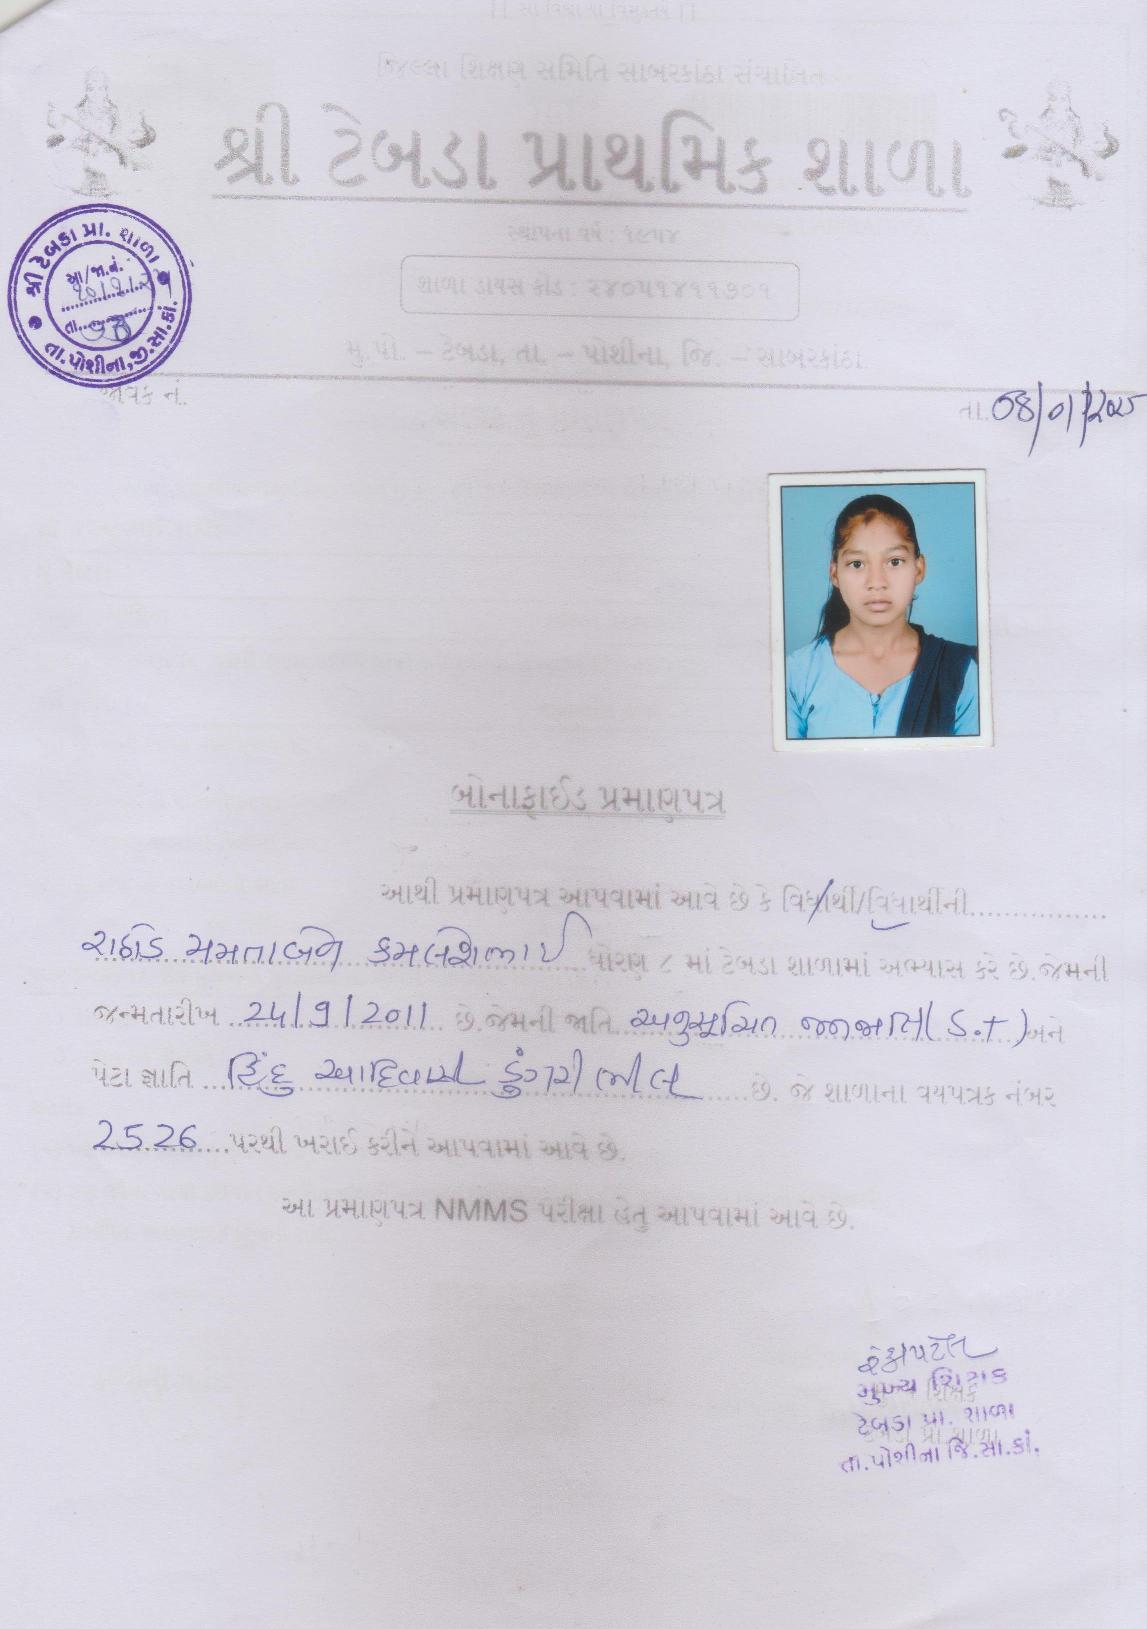 જિલ્લા શિક્ષણ સમિતિ સાબરકાંઠા સંચાલિત
શ્રી ટેબડા પ્રાથમિક શાળા
સ્થાપના વર્ષ : ૧૯૫૪
શાળા ડાયસ કોડ : ૨૪૦૫૧૪૧૧૭૦૧
મુ.પો. – ટેબડા, તા. – પોશીના, જિ. – સાબરકાંઠા
શ્રી ટેબડા પ્રા. શાળા
આ/જા.નં.
તા.
તા.પોશીના,જી.સા.કાં.
જાવક નં.
તા.08/01/2025
બોનાફાઈડ પ્રમાણપત્ર
આથી પ્રમાણપત્ર આપવામાં આવે છે કે વિદ્યાર્થી/વિદ્યાર્થીની................
રાઠોડ મમતાબેન કમલેશભાઈ ધોરણ ૮ માં ટેબડા શાળામાં અભ્યાસ કરે છે.જેમની
જન્મતારીખ 24/9/2011 છે.જેમની જાતિ અનુસૂચિત જનજાતિ(S.T) અને
પેટા જ્ઞાતિ હિંદુ આદિવાસી ડુંગરી ભીલ છે. જે શાળાના વયપત્રક નંબર
2526 પરથી ખરાઈ કરીને આપવામાં આવે છે.
આ પ્રમાણપત્ર NMMS પરીક્ષા હેતુ આપવામાં આવે છે.
મુખ્ય શિક્ષક
ટેબડા પ્રા. શાળા
તા.પોશીના જિ.સા.કાં.